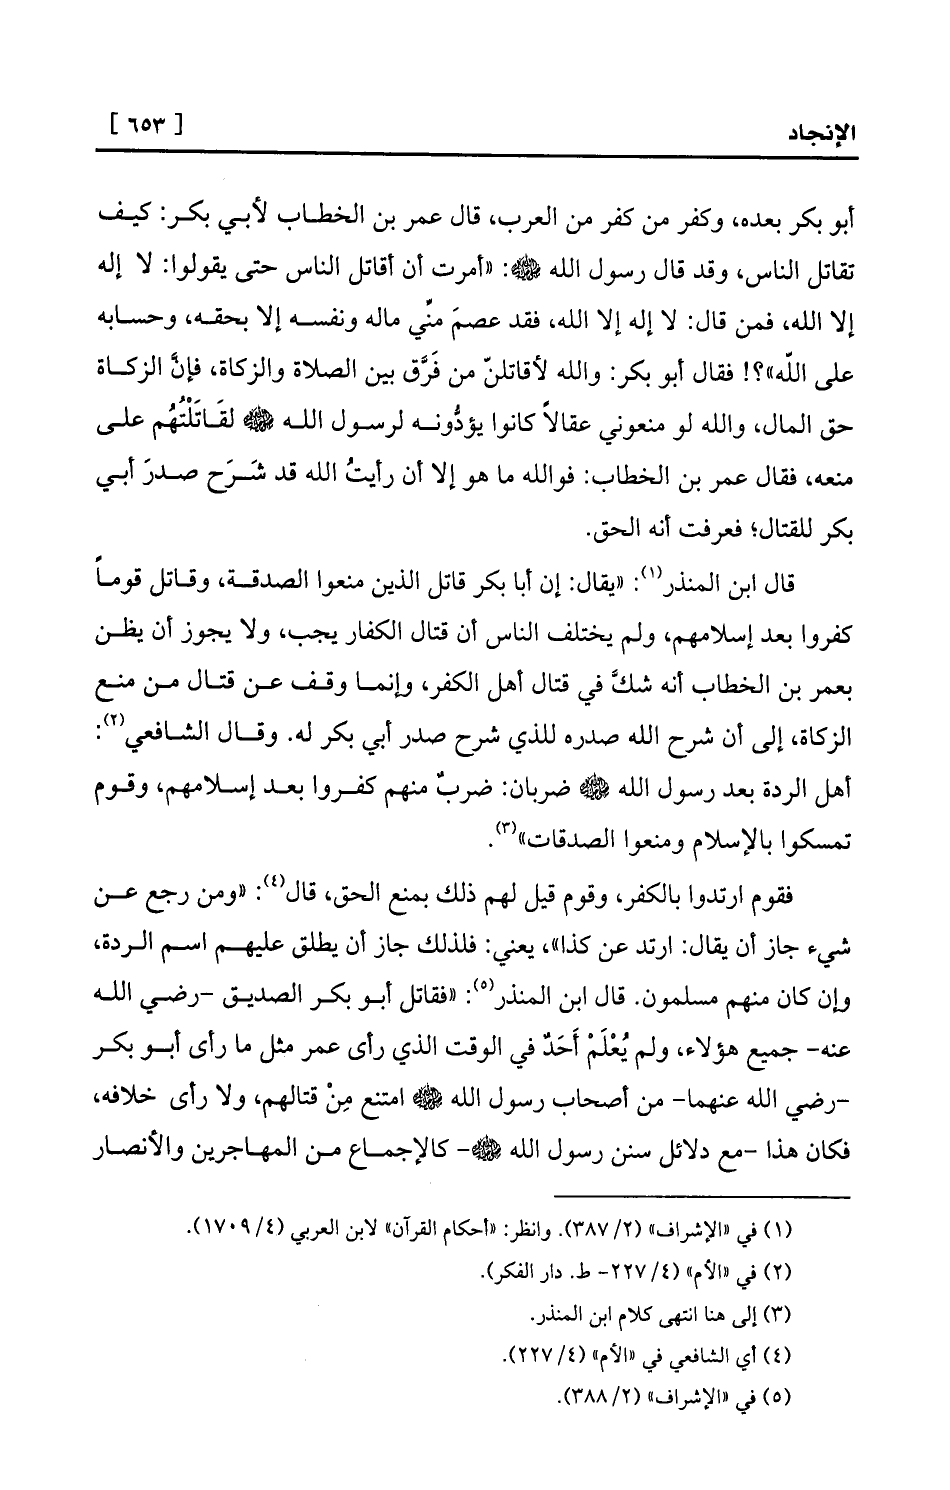 الإنجاد
[ ٦٥٣ ]
أبو بكر بعده، وكفر من كفر من العرب، قال عمر بن الخطاب لأبي بكر: كيف
تقاتل الناس، وقد قال رسول الله ﷺ: «أمرت أن أقاتل الناس حتى يقولوا: لا إله
إلا الله، فمن قال: لا إله إلا الله، فقد عصمَ منِّي ماله ونفسه إلا بحقه، وحسابه
على الله»؟! فقال أبو بكر: والله لأقاتلنّ من فَرَّق بين الصلاة والزكاة، فإنَّ الزكاة
حق المال، والله لو منعوني عقالاً كانوا يؤدُّونه لرسول الله ﷺ لقَاتَلْتُهُم على
منعه، فقال عمر بن الخطاب: فوالله ما هو إلا أن رأيتُ الله قد شَرَح صدرَ أبي
بكر للقتال؛ فعرفت أنه الحق.
قال ابن المنذر(١): «يقال: إن أبا بكر قاتل الذين منعوا الصدقة، وقاتل قوماً
كفروا بعد إسلامهم، ولم يختلف الناس أن قتال الكفار يجب، ولا يجوز أن يظن
بعمر بن الخطاب أنه شكَّ في قتال أهل الكفر، وإنما وقف عن قتال من منع
الزكاة، إلى أن شرح الله صدره للذي شرح صدر أبي بكر له. وقال الشافعي(٢):
أهل الردة بعد رسول الله ﷺ ضربان: ضربٌ منهم كفروا بعد إسلامهم، وقوم
تمسكوا بالإسلام ومنعوا الصدقات»(٣).
فقوم ارتدوا بالكفر، وقوم قيل لهم ذلك بمنع الحق، قال(٤): «ومن رجع عن
شيء جاز أن يقال: ارتد عن كذا»، يعني: فلذلك جاز أن يطلق عليهم اسم الردة،
وإن كان منهم مسلمون. قال ابن المنذر(٥): «فقاتل أبو بكر الصديق -رضي الله
عنه- جميع هؤلاء، ولم يُعْلَمْ أَحَدٌ في الوقت الذي رأى عمر مثل ما رأى أبو بكر
-رضي الله عنهما- من أصحاب رسول الله ﷺ امتنع مِنْ قتالهم، ولا رأى خلافه،
فكان هذا -مع دلائل سنن رسول الله ﷺ- كالإجماع من المهاجرين والأنصار
(١) في «الإشراف» (٢/ ٣٨٧). وانظر: «أحكام القرآن» لابن العربي (٤/ ١٧٠٩).
(٢) في «الأم» (٤/ ٢٢٧- ط. دار الفكر).
(٣) إلى هنا انتهى كلام ابن المنذر.
(٤) أي الشافعي في «الأم» (٤/ ٢٢٧).
(٥) في «الإشراف» (٢/ ٣٨٨).